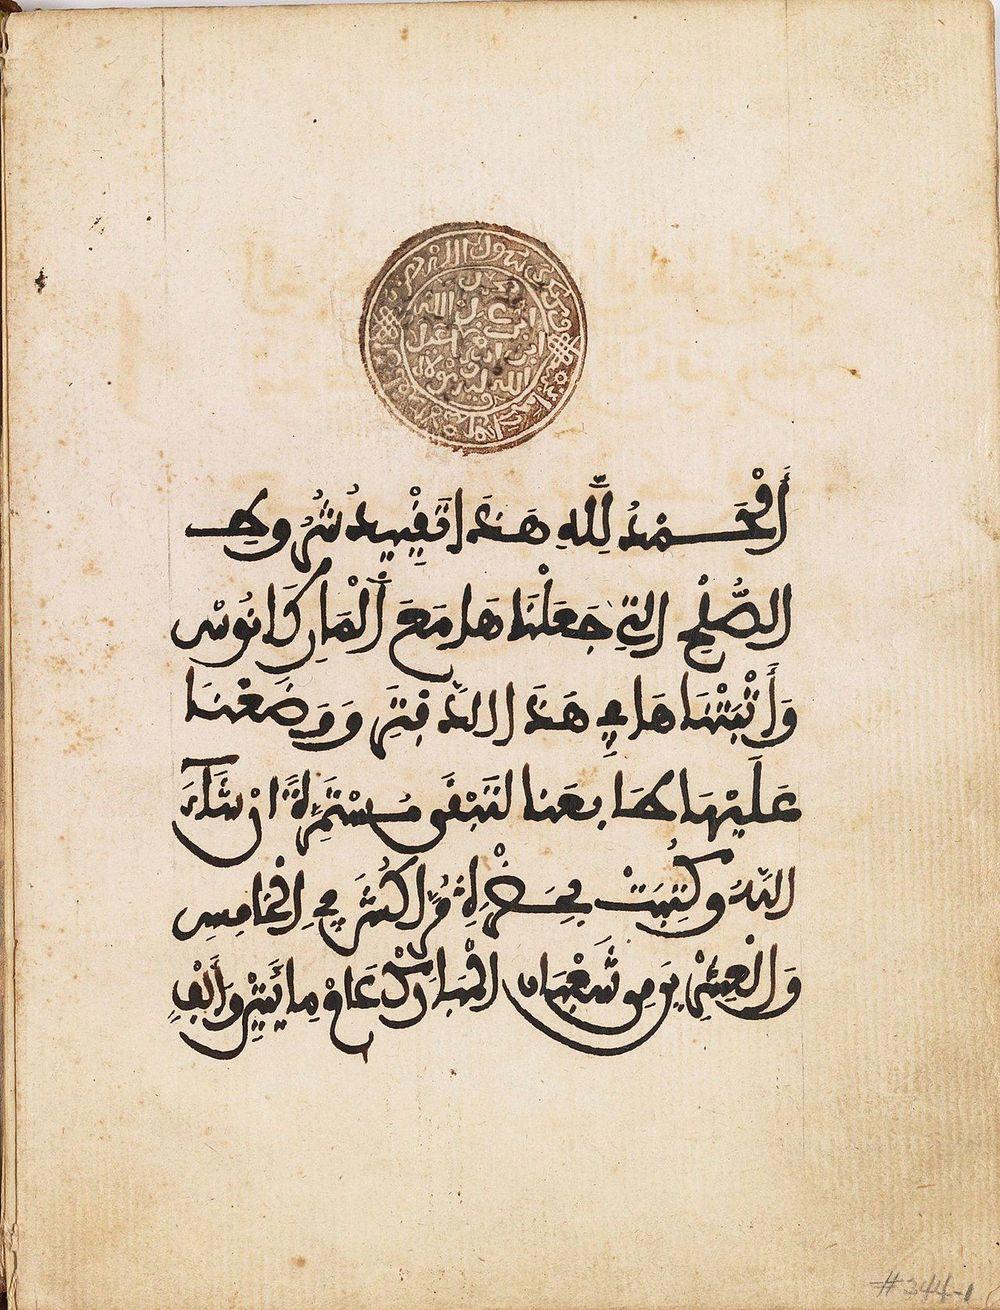 أَلْحَمْدُ لِلَّهِ هَذَا تَقْيِيدُ شُرُوطِ
الصُّلْحِ التِي جَعَلْنَاهَا مَعَ أَلْمَارِكَانُوسْ
وَأَثْبَتْنَاهَا فِي هَذَا الدَّفْتَرِ وَوَضَعْنَا
عَلَيْهَا طَابِعَنَا لتَبْقَى مُسْتَمِرَّةً انْ شَآءَ
اللَّهُ وَكُتِبَتْ بِحَضْرَةِ مُرَّاكُشَ فِي الْخَامِسِ
وَالْعِشْرِينَ مِن شَعْبَان الْمُبَارَكْ عَامْ مِايَتَيْنِ وَأَلْفِ
#344-1